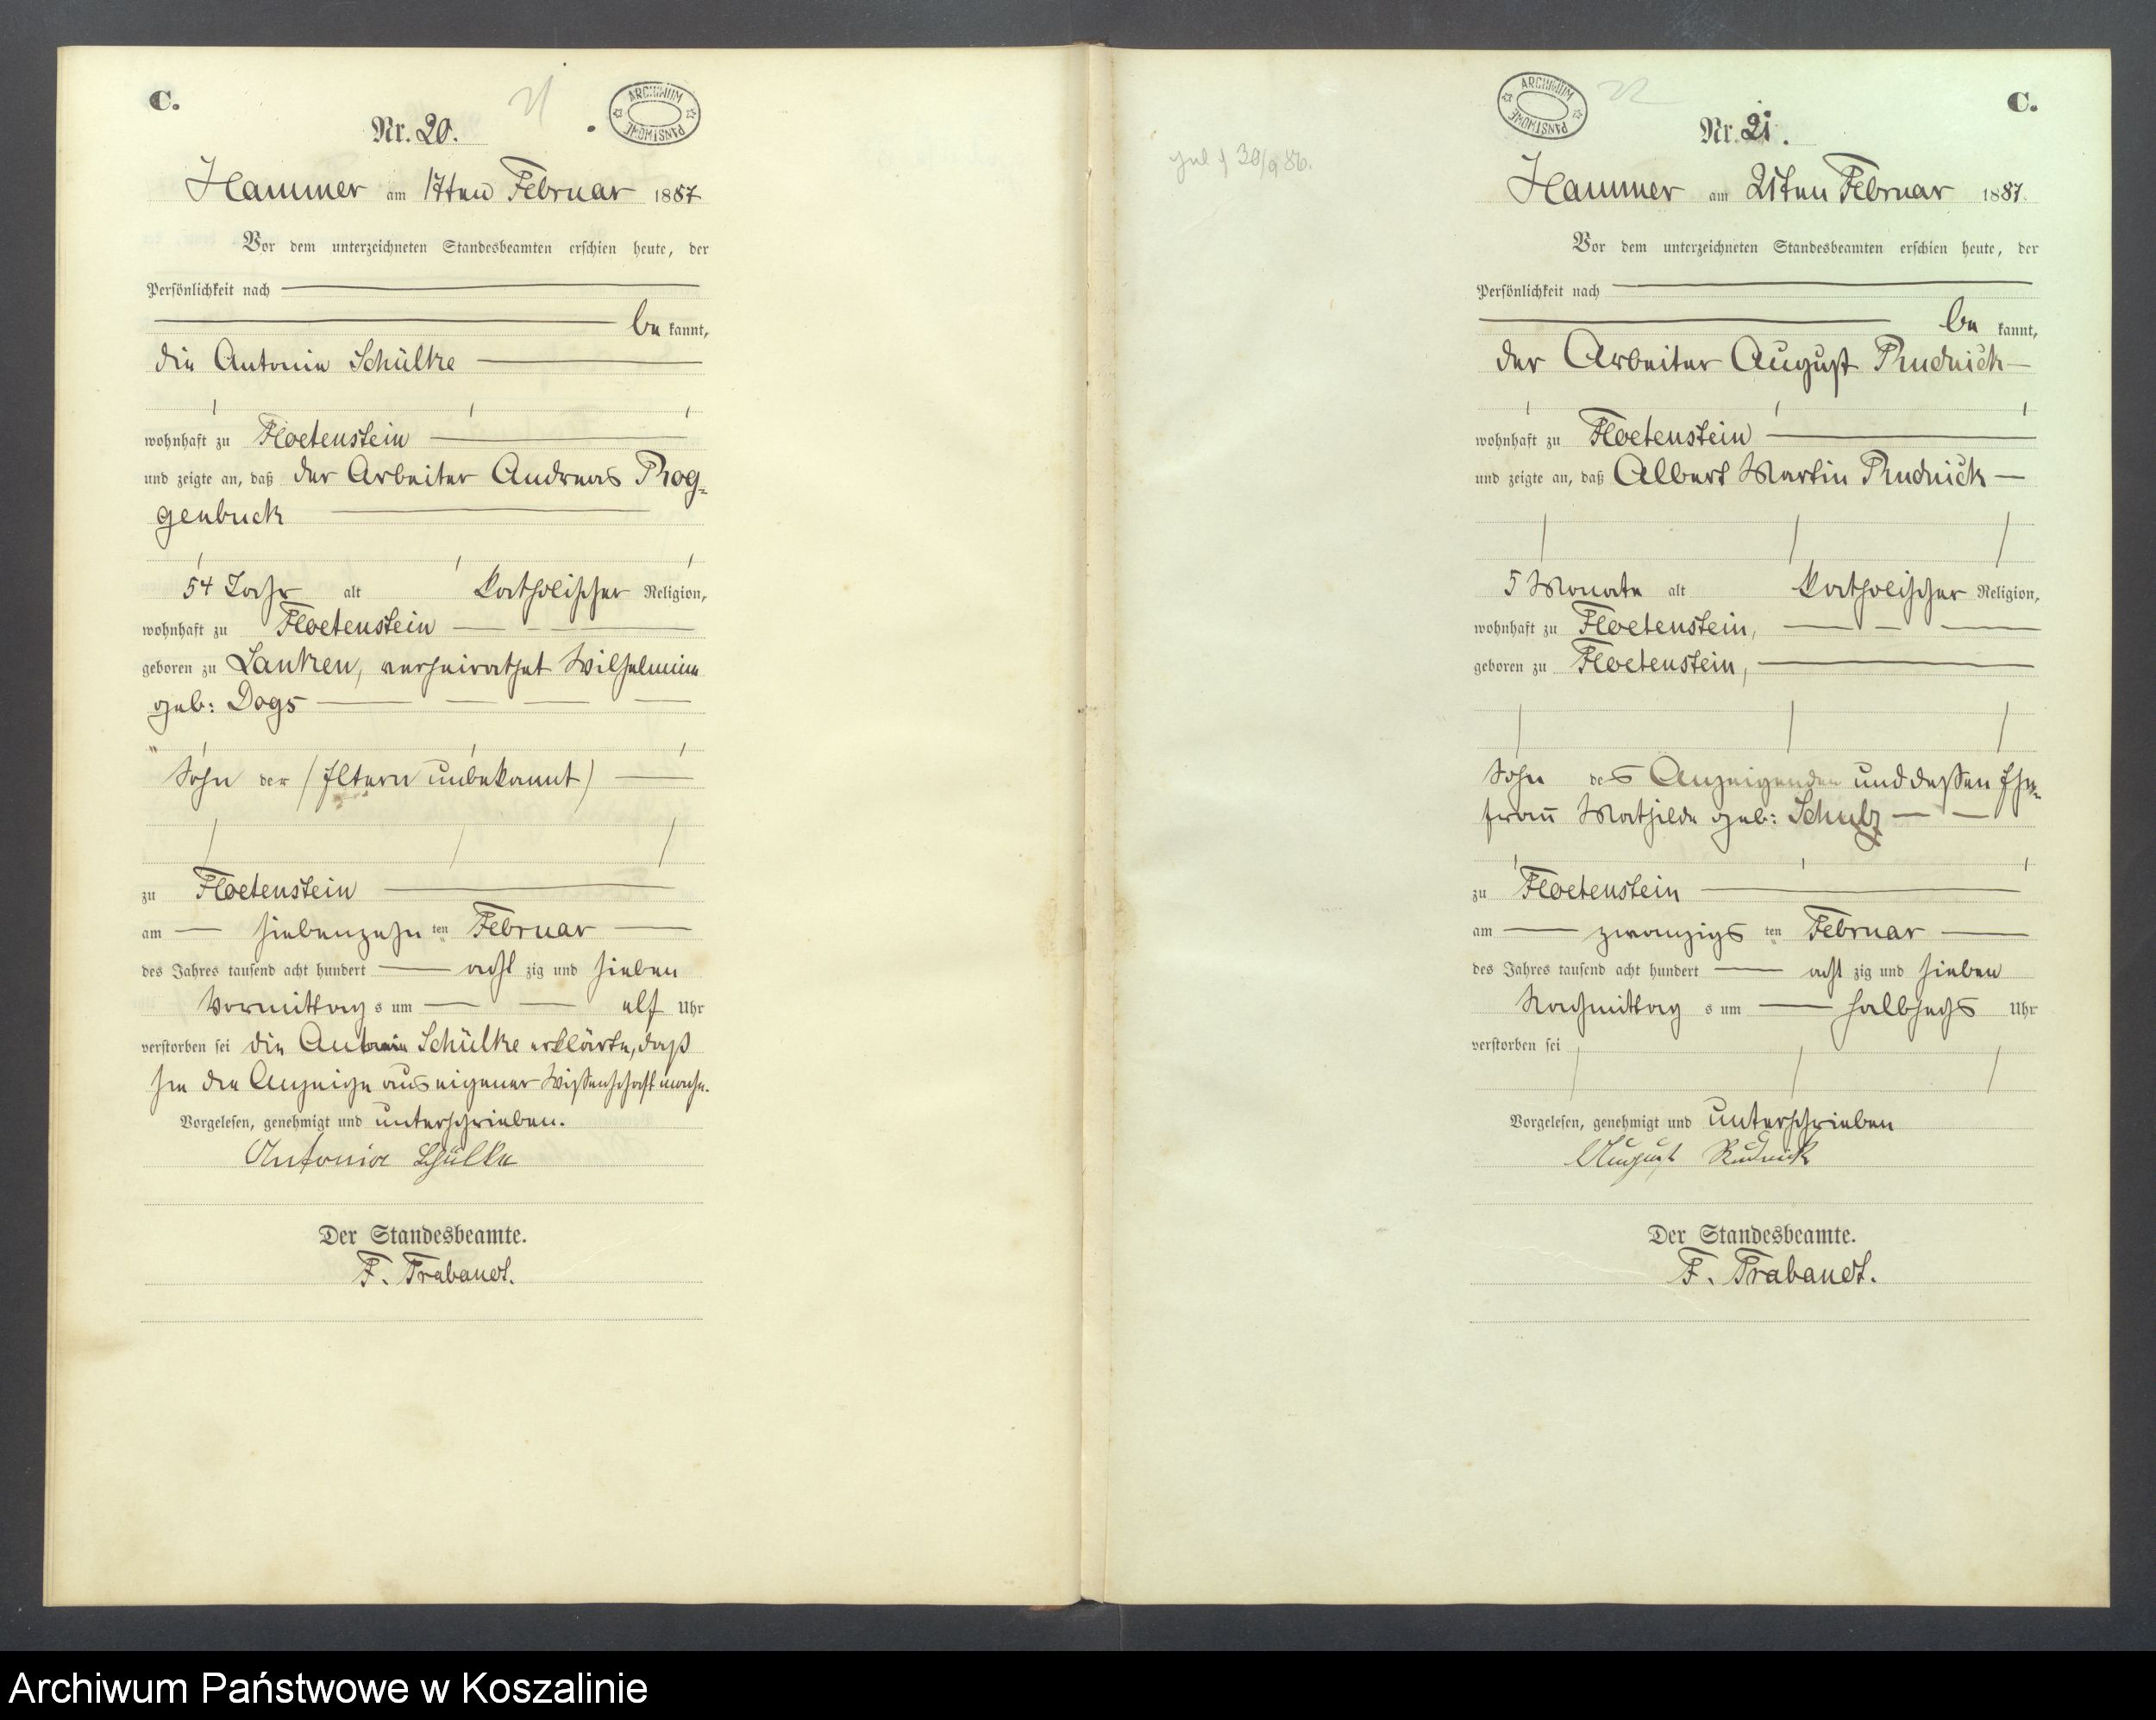 C.
ARCHIWUM PAŃSTWOWE
Nr. 20.
Hammer am 17ten Februar 1887
Vor dem unterzeichneten Standesbeamten erschien heute, der
Persönlichkeit nach
be kannt,
die Antonie Schülke
wohnhaft zu Floetenstein
und zeigte an, daß der Arbeiter Andreas Rog-
genbuck
54 Jahr alt katholischer Religion,
wohnhaft zu Floetenstein
geboren zu Lanken, verheirathet Wilhelmine
geb: Dogs
Sohn der (Eltern unbekannt)
zu Floetenstein
am siebenzehn ten Februar
des Jahres tausend acht hundert acht zig und sieben
Vormittag s um elf Uhr
verstorben sei die Antonie Schülke erklärte, daß
sie die Anzeige aus eigener Wissenschaft mache.
Vorgelesen, genehmigt und unterschrieben.
Antonia Schülke
Der Standesbeamte.
F. Trabandt.
C.
ARCHIWUM PAŃSTWOWE
22
Nr. 21.
30/9 86.
Hammer am 21ten Februar 1887.
Vor dem unterzeichneten Standesbeamten erschien heute, der
Persönlichkeit nach
be kannt,
der Arbeiter August Rudnick
wohnhaft zu Floetenstein
und zeigte an, daß Albert Martin Rudnick
5 Monate alt katholischer Religion,
wohnhaft zu Floetenstein,
geboren zu Floetenstein,
Sohn des Anzeigenden und dessen Ehe-
frau Mathilde geb: Schulz
zu Floetenstein
am zwanzigs ten Februar
des Jahres tausend acht hundert acht zig und sieben
Nachmittag s um halbsechs Uhr
verstorben sei
Vorgelesen, genehmigt und unterschrieben
August Rudnick
Der Standesbeamte.
F. Trabandt.
Archiwum Państwowe w Koszalinie